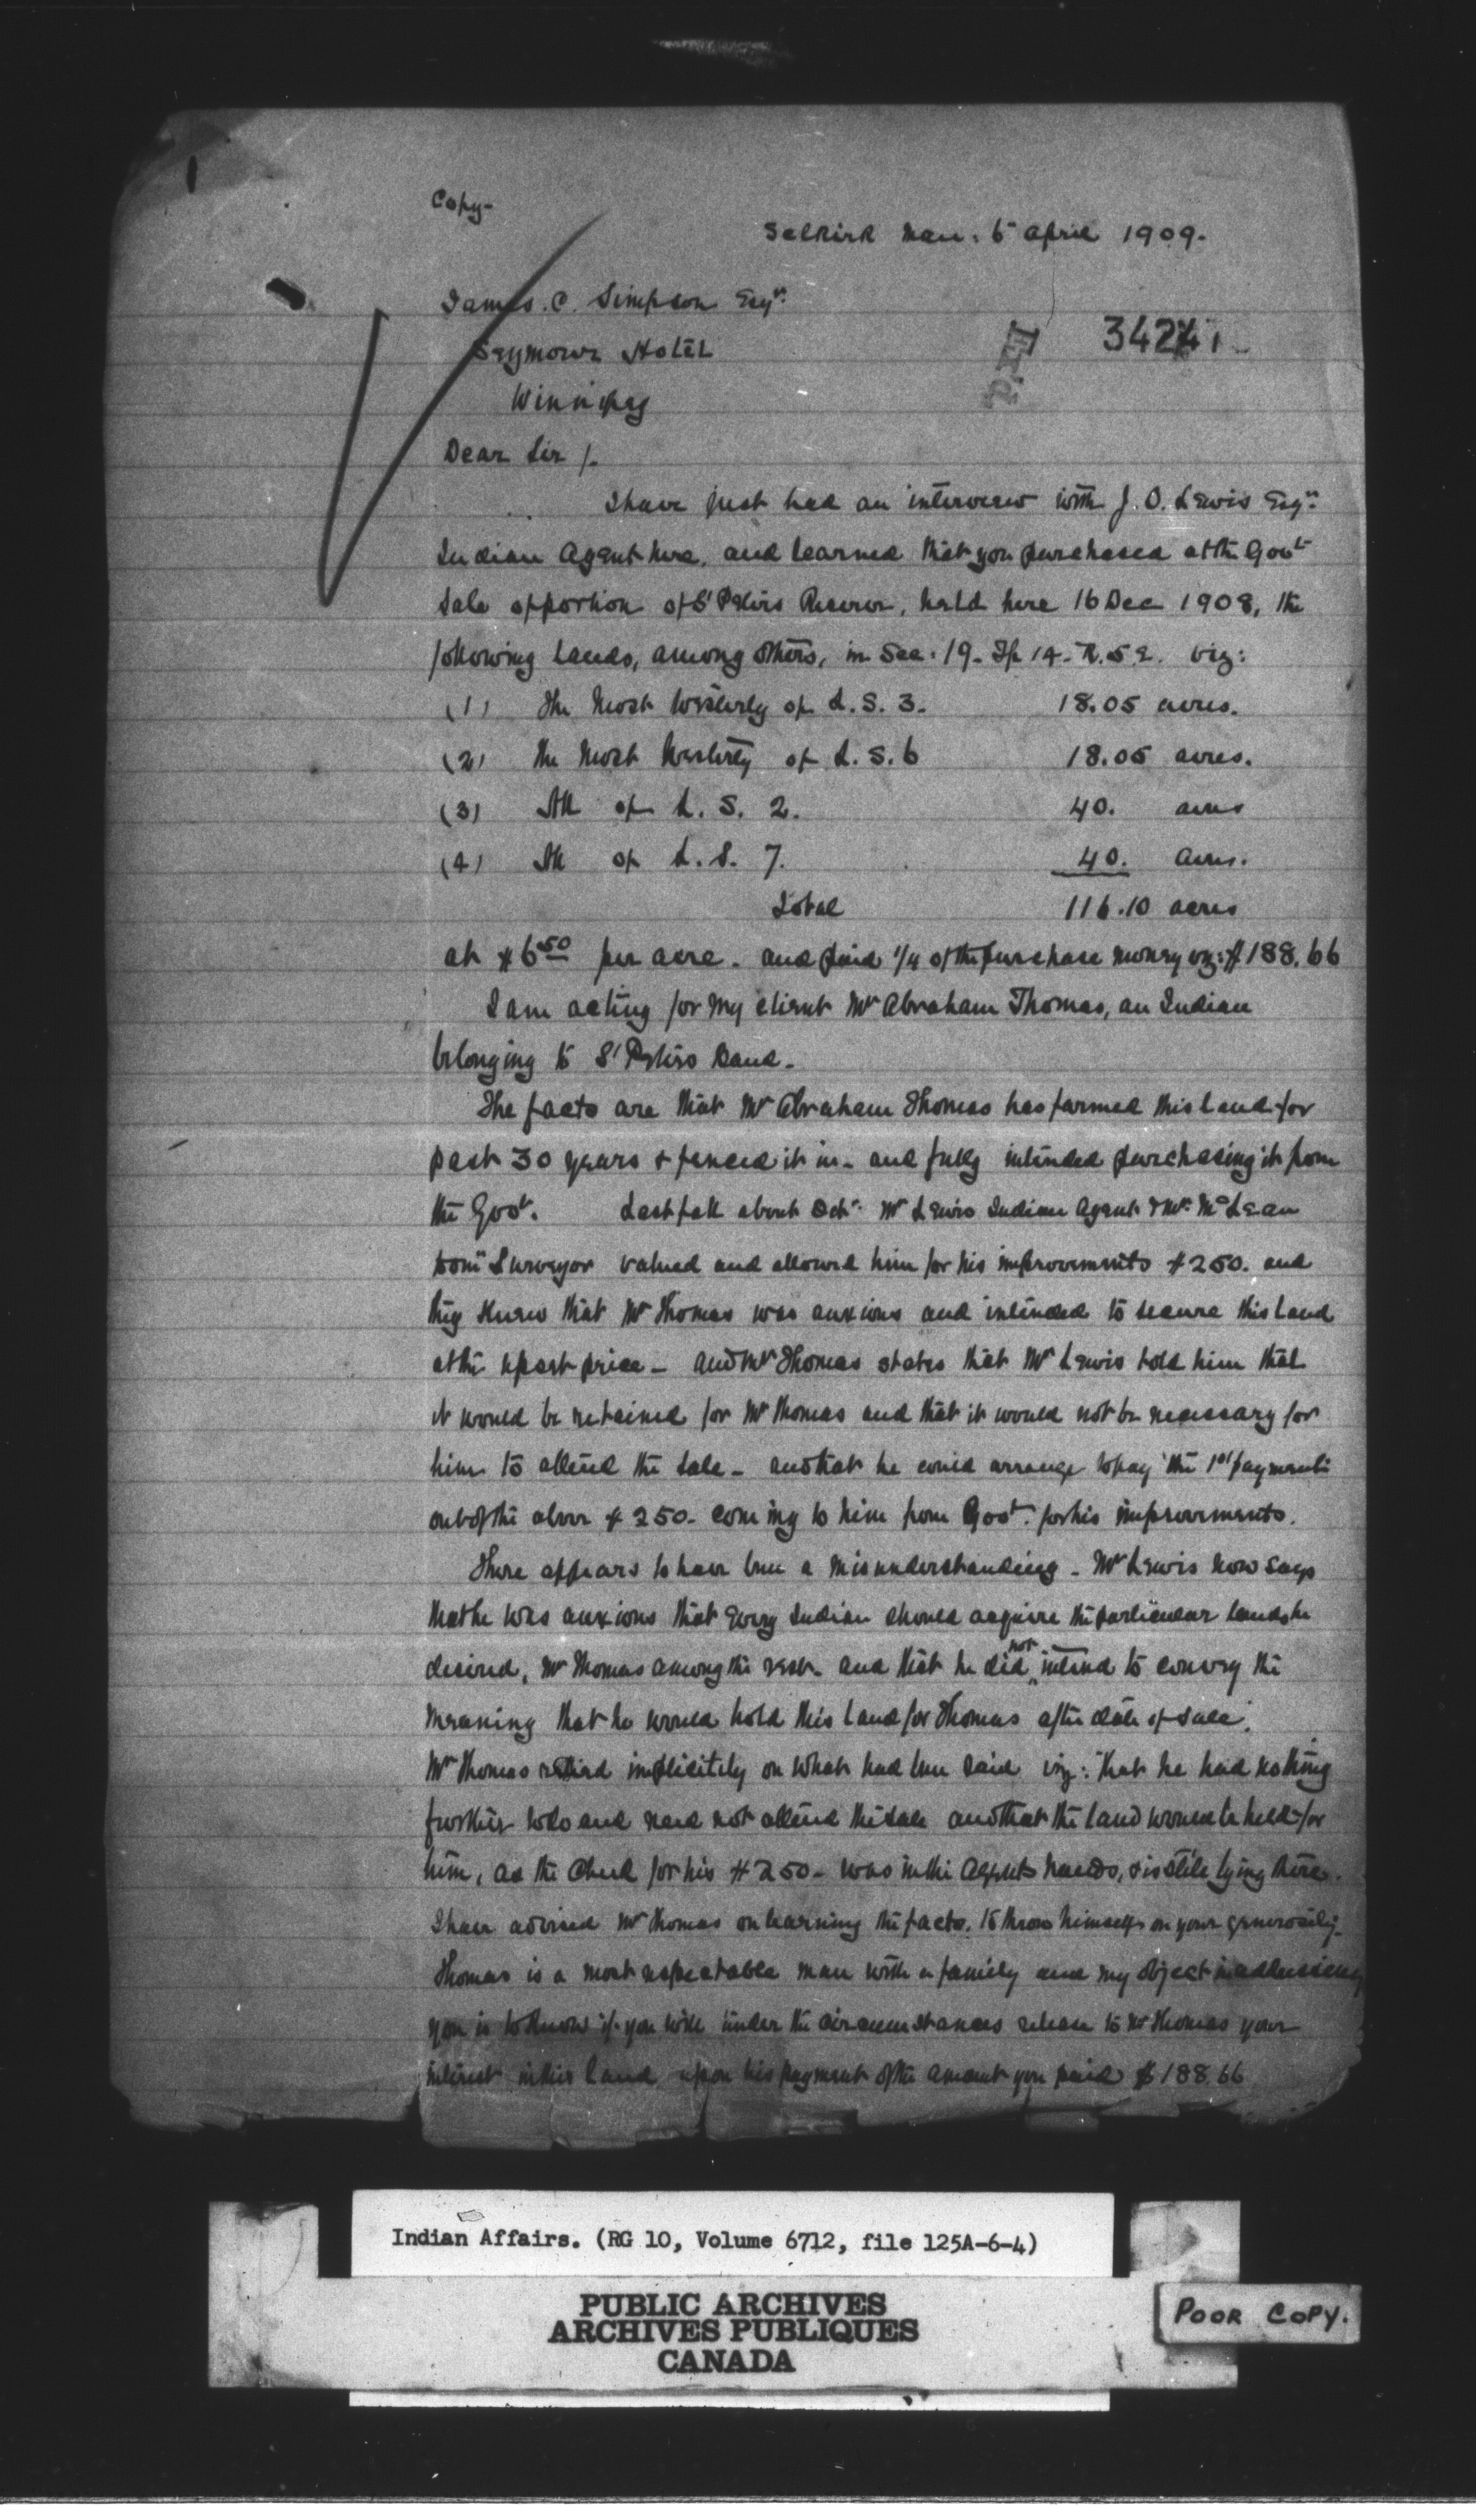 Copy-
Selkirk Man: 5 April 1909.
James. C. Simpson Esqr.
Seymour Hotel
Winnipeg
Ex'd
34241
Dear Sir /.
I have just had an interview with J. O. Lewis Esqr.
Indian Agent here, and learned that you purchased at the Govt
Sale of portion of St Peters Reserve, held here 16 Dec 1908, the
following lands, among others, in Sec: 19. Tp 14. R. 5 E. viz:
(1) The most westerly of L. S. 3. 18.05 acres.
(2) The most westerly of L. S. 6 18.05 acres.
(3) All of L. S. 2. 40. acres
(4) All of L. S. 7. 40. acres.
Total 116.10 acres
at $6.50 per acre. and paid 1/4 of the purchase money viz: $188.66
I am acting for my client Mr Abraham Thomas, an Indian
belonging to St Peters Band.
The facts are that Mr Abraham Thomas has farmed this land for
past 30 years & fenced it in. and fully intended purchasing it from
the Govt. Last fall about Octr. Mr Lewis Indian Agent & Mr. McLean
Domn Surveyor valued and allowed him for his improvements $250. and
they knew that Mr Thomas was anxious and intended to secure this land
at the upset price - and Mr Thomas states that Mr Lewis told him that
it would be retained for Mr Thomas and that it would not be necessary for
him to attend the sale - and that he could arrange to pay the 1st payment
out of the above $250. coming to him from Govt. for his improvements.
There appears to have been a misunderstanding - Mr Lewis now says
that he was anxious that every Indian should acquire the particular lands he
desired, Mr Thomas among the rest. and that he did not intend to convey the
meaning that he would hold this land for Thomas after date of sale.
Mr Thomas relied implicitely on what had been said viz: that he had nothing
further to do and need not attend the sale and that the land would be held for
him, as the check for his $250 - was in the agents hands, & is still lying there.
I have advised Mr Thomas on learning the facts. to throw himself on your generosity.
Thomas is a most respectable man with a family and my object in addressing
you is to know if you will under the circumstances release to Mr Thomas your
interest in this land upon his payment of the amount you paid $188.66
Indian Affairs. (RG 10, Volume 6712, file 125A-6-4)
PUBLIC ARCHIVES
ARCHIVES PUBLIQUES
CANADA
POOR COPY.